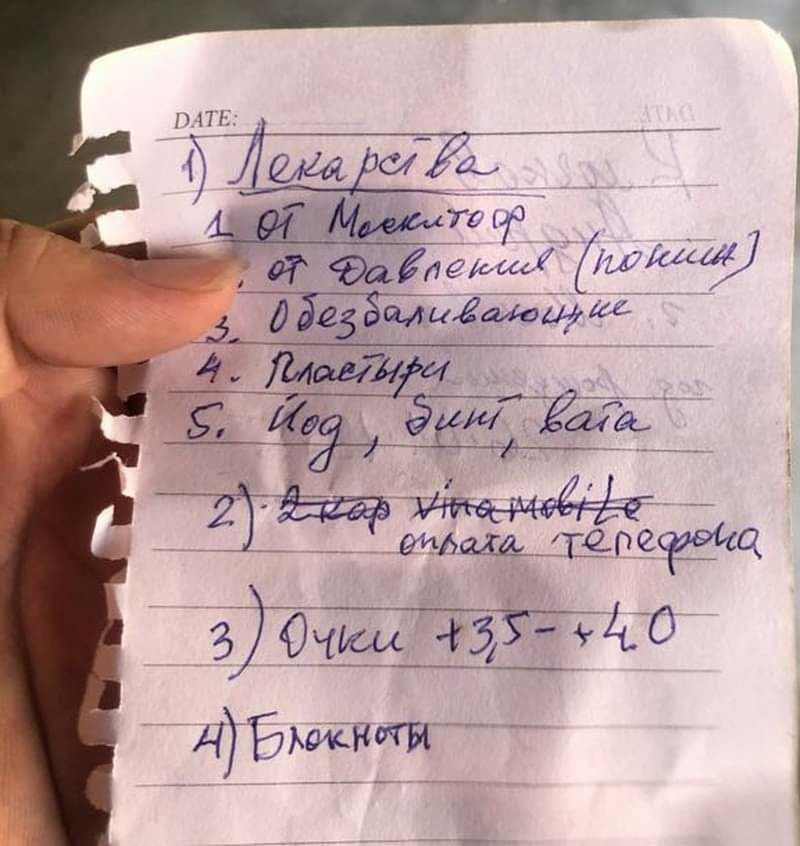 DATE:
1) Лекарства
1 от Москитоф
. от Давления (пониж)
3. Обезбаливающие
4. Пластыри
5. Йод, бинт, вата
2) 2 кар vinamobile
оплата телефона
3) Очки +3,5 - +4.0
4) Блокноты